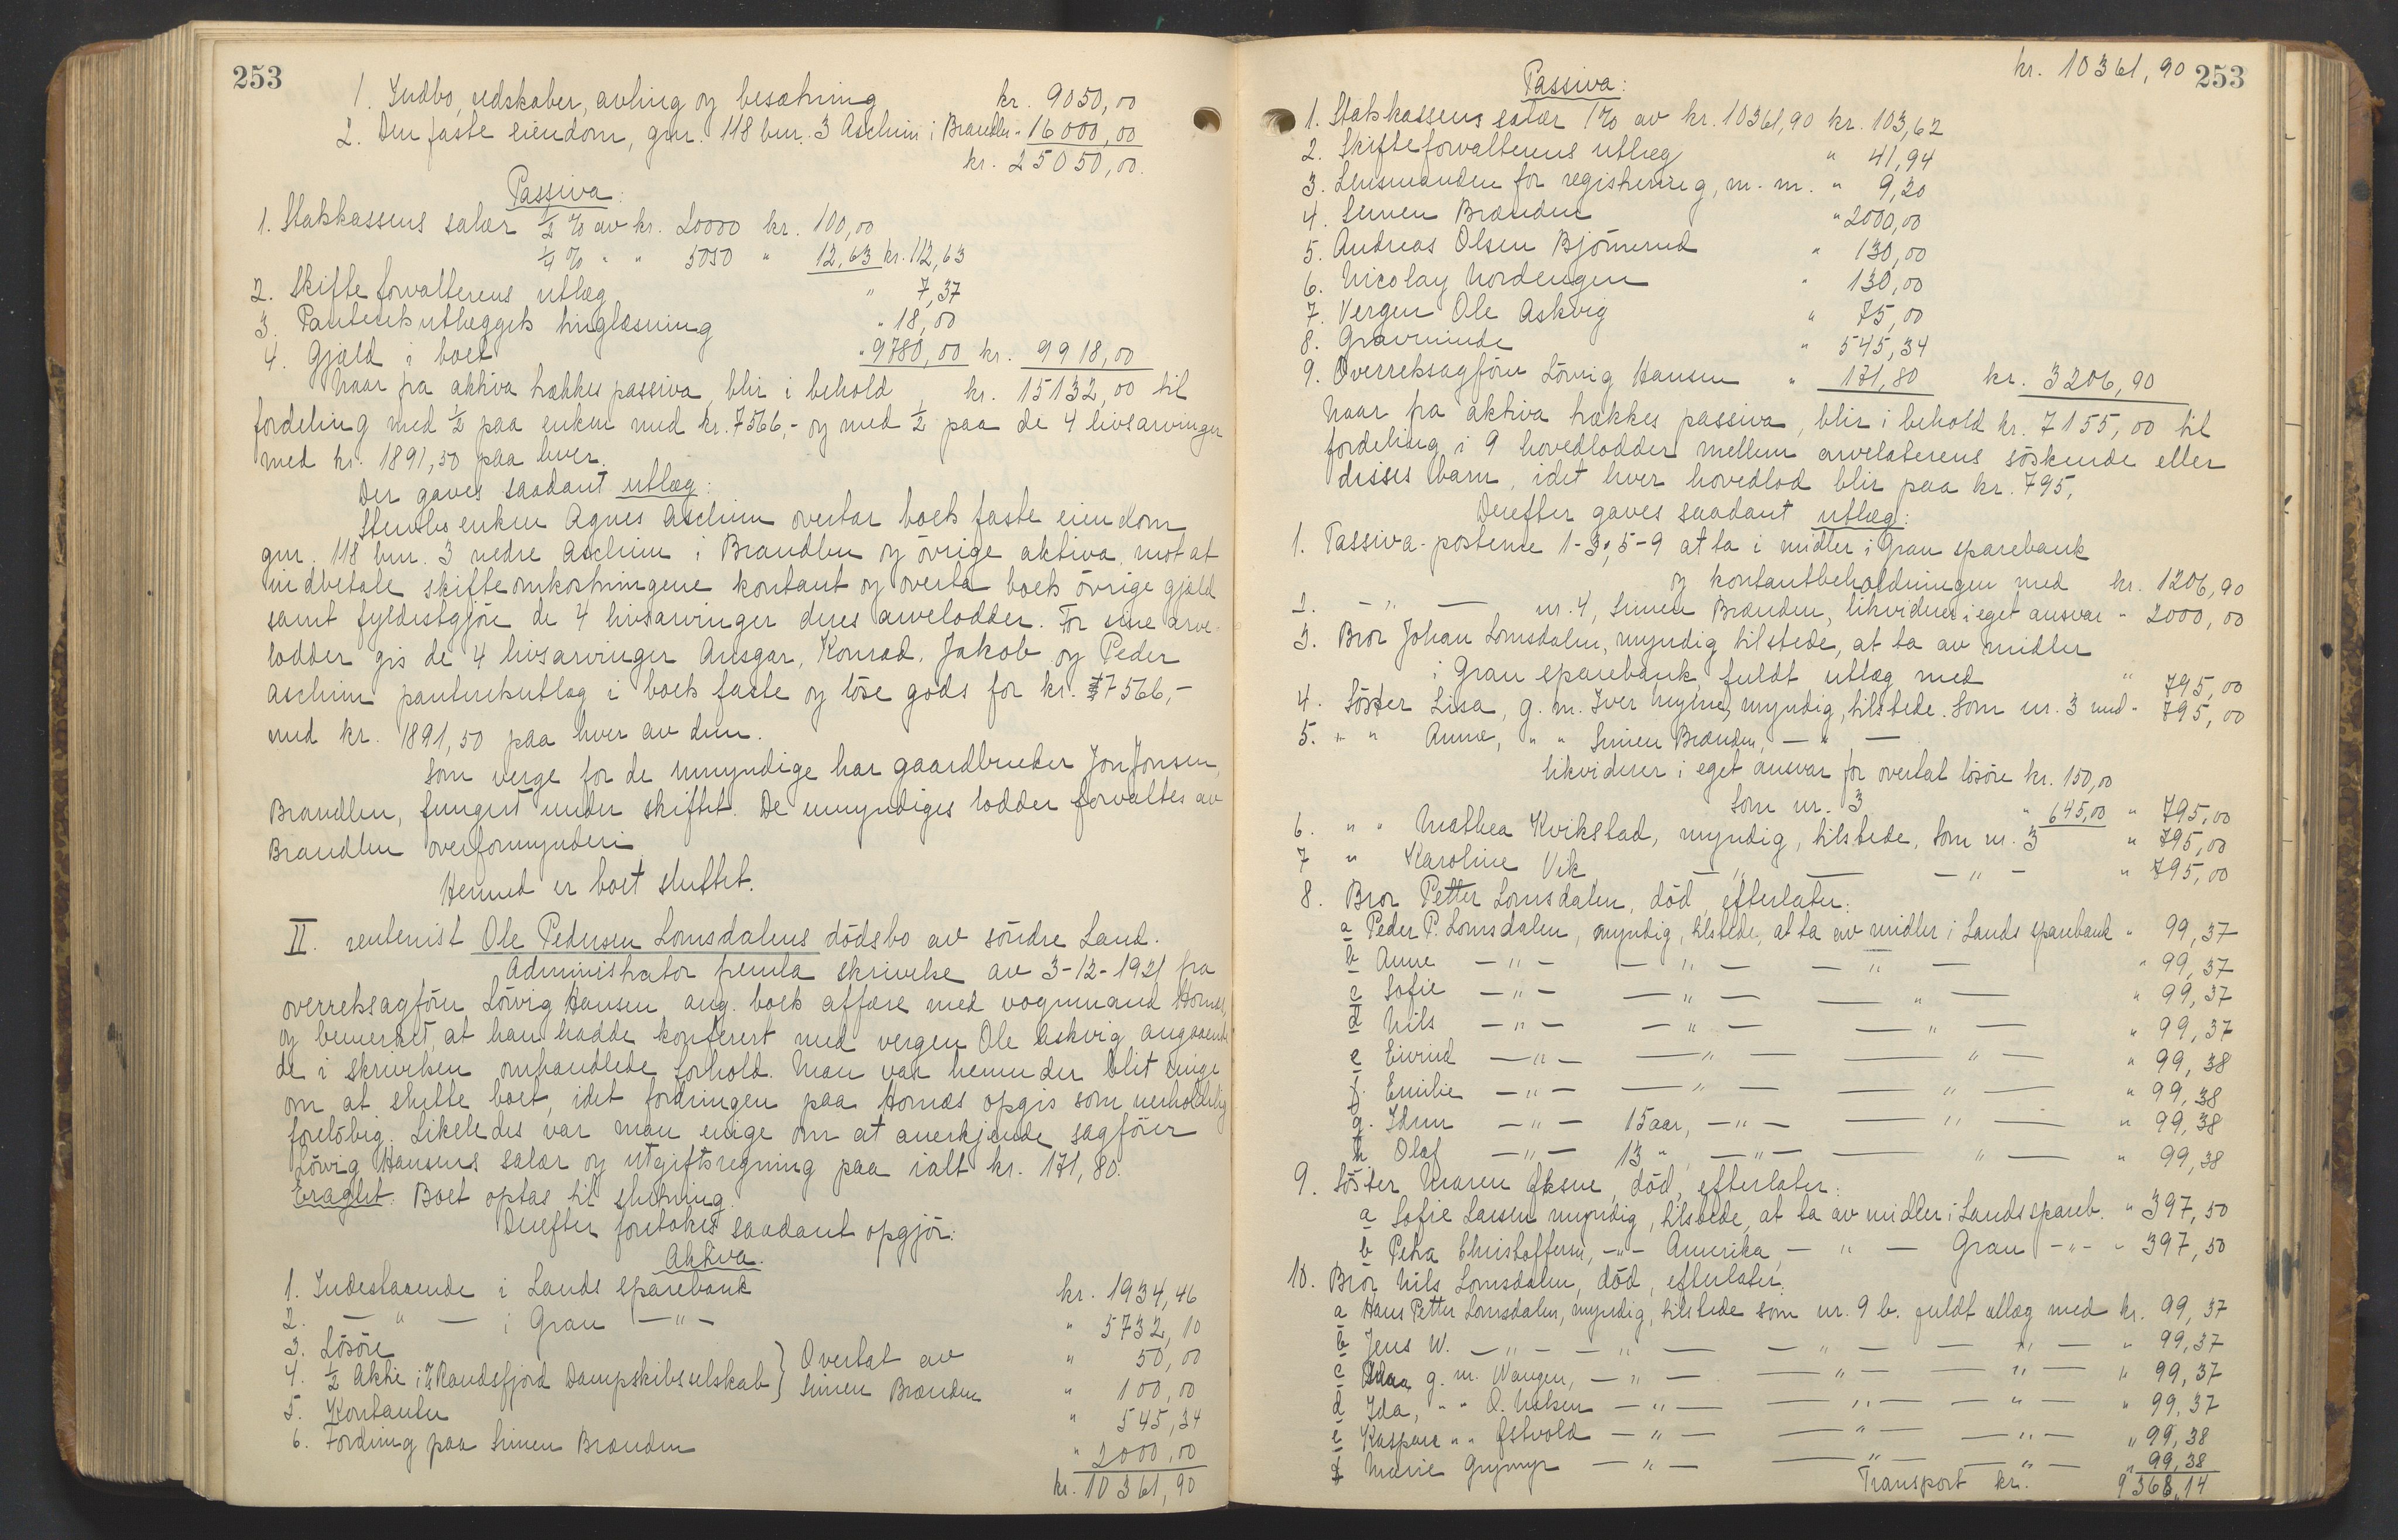 253
1. Indbo, redskaber, avling og besætning kr. 9050,00
2. Den faste eiendom, gnr. 118 bnr. 3 Aschim i Brandbu " 16000,00
kr. 25050,00.
Passiva:
1. Statskassens salær ½ % av kr. 20000 kr. 100,00
¼ % " " 5050 " 12,63 kr. 112,63
2. Skifteforvalterens utlæg " 7,37
3. Panteretsutlæggets tinglæsning " 18,00
4. Gjæld i boet " 9780,00 kr. 9918,00
Naar fra aktiva trækkes passiva, blir i behold kr. 15132,00 til
fordeling med ½ paa enken med kr. 7566,- og med ½ paa de 4 livsarvinger
med kr. 1891,50 paa hver.
Der gaves saadant utlæg:
Stervbo enken Agnes Aschim overtar boets faste eiendom
gnr. 118 bnr. 3 nedre Aschim i Brandbu og övrige aktiva, mot at
indbetale skifteomkostningene kontant og overta boets övrige gjæld
samt fyldestgjöre de 4 livsarvinger deres arvelodder. For sine arve-
lodder gis de 4 livsarvinger Ansgar, Konrad, Jakob og Peder
Aschim panteretsutlæg i boets faste og löse gods for kr. 7566,-
med kr. 1891,50 paa hver av dem.
Som verge for de umyndige har gaardbruker Jon Jonsen,
Brandbu, fungert under skiftet. De umyndiges lodder forvaltes av
Brandbu overformynderi
Hermed er boet sluttet.
II. rentenist Ole Pedersen Lomsdalens dödsbo av söndre Land.
Administrator fremla skrivelse av 3-12-1921 fra
overretssagförer Lövig Hansen ang. boets affære med vognmand Homes,
og bemerket at han hadde konferert med vergen Ole Askvig angaaende
de i skrivelsen omhandlede forhold. Man var herunder blit enige
om at slutte boet, idet fordringen paa Homæs opgis som uerholdelig
forelöbig. Likeledes var man enige om at anerkjende sagförer
Lövig Hansens salær og utgiftsregning paa ialt kr. 171,80.
Eragtet: Boet optas til slutning.
Derefter foretokes saadant opgjör:
Aktiva.
1. Indestaaende i Lands sparebank kr. 1934,46
2. — " — i Gran — " — " 5732,10
3. Lösöre } Overtat av " 50,00
4. ½ Aktie i Randsfjord Dampskibsselskab } Simen Brænden " 100,00
5. Kontanter " 545,34
6. Fordring paa Simen Brænden " 2000,00
kr. 10361,90
kr. 10361,90 253
Passiva:
1. Statskassens salær 1% av kr. 10361,90 kr. 103,62
2. Skifteforvalterens utlæg " 41,94
3. Lensmanden for registrering, m.m. " 9,20
4. Simen Brænden " 2000,00
5. Andreas Olsen Björnerud " 130,00
6. Nicolay Nordengen " 130,00
7. Vergen Ole Askvig " 75,00
8. Gravminde " 545,34
9. Overretssagförer Lövig Hansen " 171,80 kr. 3206,90
Naar fra aktiva trækkes passiva, blir i behold kr. 7155,00 til
fordeling i 9 hovedlodder mellem arvelaterens söskende eller
disses barn, idet hver hovedlod blir paa kr. 795,
Derefter gaves saadant utlæg:
1. Passiva-posterne 1-3, 5-9 at ta i midler i Gran sparebank
og kontantbeholdningen med kr. 1206,90
2. — " — nr. 4, Simen Brænden, likviderer i eget ansvar " 2000,00
3. Bror Johan Lomsdalen, myndig tilstede, at ta av midler
i Gran sparebank, fuldt utlæg med " 795,00
4. Söster Lisa, g. m. Iver Myhre, myndig, tilstede. Som nr. 3 med " 795,00
5. " " Anne, " " Simen Brænden, — " —
likviderer i eget ansvar for overtat lösöre kr. 150,00
Som nr. 3 " 645,00 " 795,00
6. " " Mathea Kvikstad, myndig, tilstede. Som nr. 3 " 795,00
7 " Karoline Vik — " — — " — " 795,00
8. Bror Petter Lomsdalen, död, efterlater:
a Peder P. Lomsdalen, myndig, tilstede, at ta av midler i Lands sparebank " 99,37
b Anne — " — — " — — " — " 99,37
c Sofie — " — — " — — " — " 99,37
d Nils — " — — " — — " — " 99,37
e Eivind — " — — " — — " — " 99,38
f. Emilie — " — — " — — " — " 99,38
g. Idun — " — 15 aar, — " — — " — " 99,38
h Olaf — " — 13 " , — " — — " — " 99,38
9. Söster Maren Öksne, död, efterlater:
a Sofie Larsen myndig, tilstede, at ta av midler i Lands spareb. " 397,50
b Petra Christoffersen, — " — Amerika, — " — Gran — " — " 397,50
10. Bror Nils Lomsdalen, död, efterlater:
a Hans Petter Lomsdalen, myndig, tilstede som nr. 9 b. fuldt utlæg med kr. 99,37
b Jens W. — " — — " — — " — — " — " 99,37
c g. m. Wangen, — " — — " — " — " 99,37
d Ida, " " O. Nelsen — " — — " — — " — " 99,37
e Kaspara " " Östvold — " — — " — — " — " 99,38
f Marie Grymyr — " — — " — — " — " 99,38
Transport kr. 9368,14